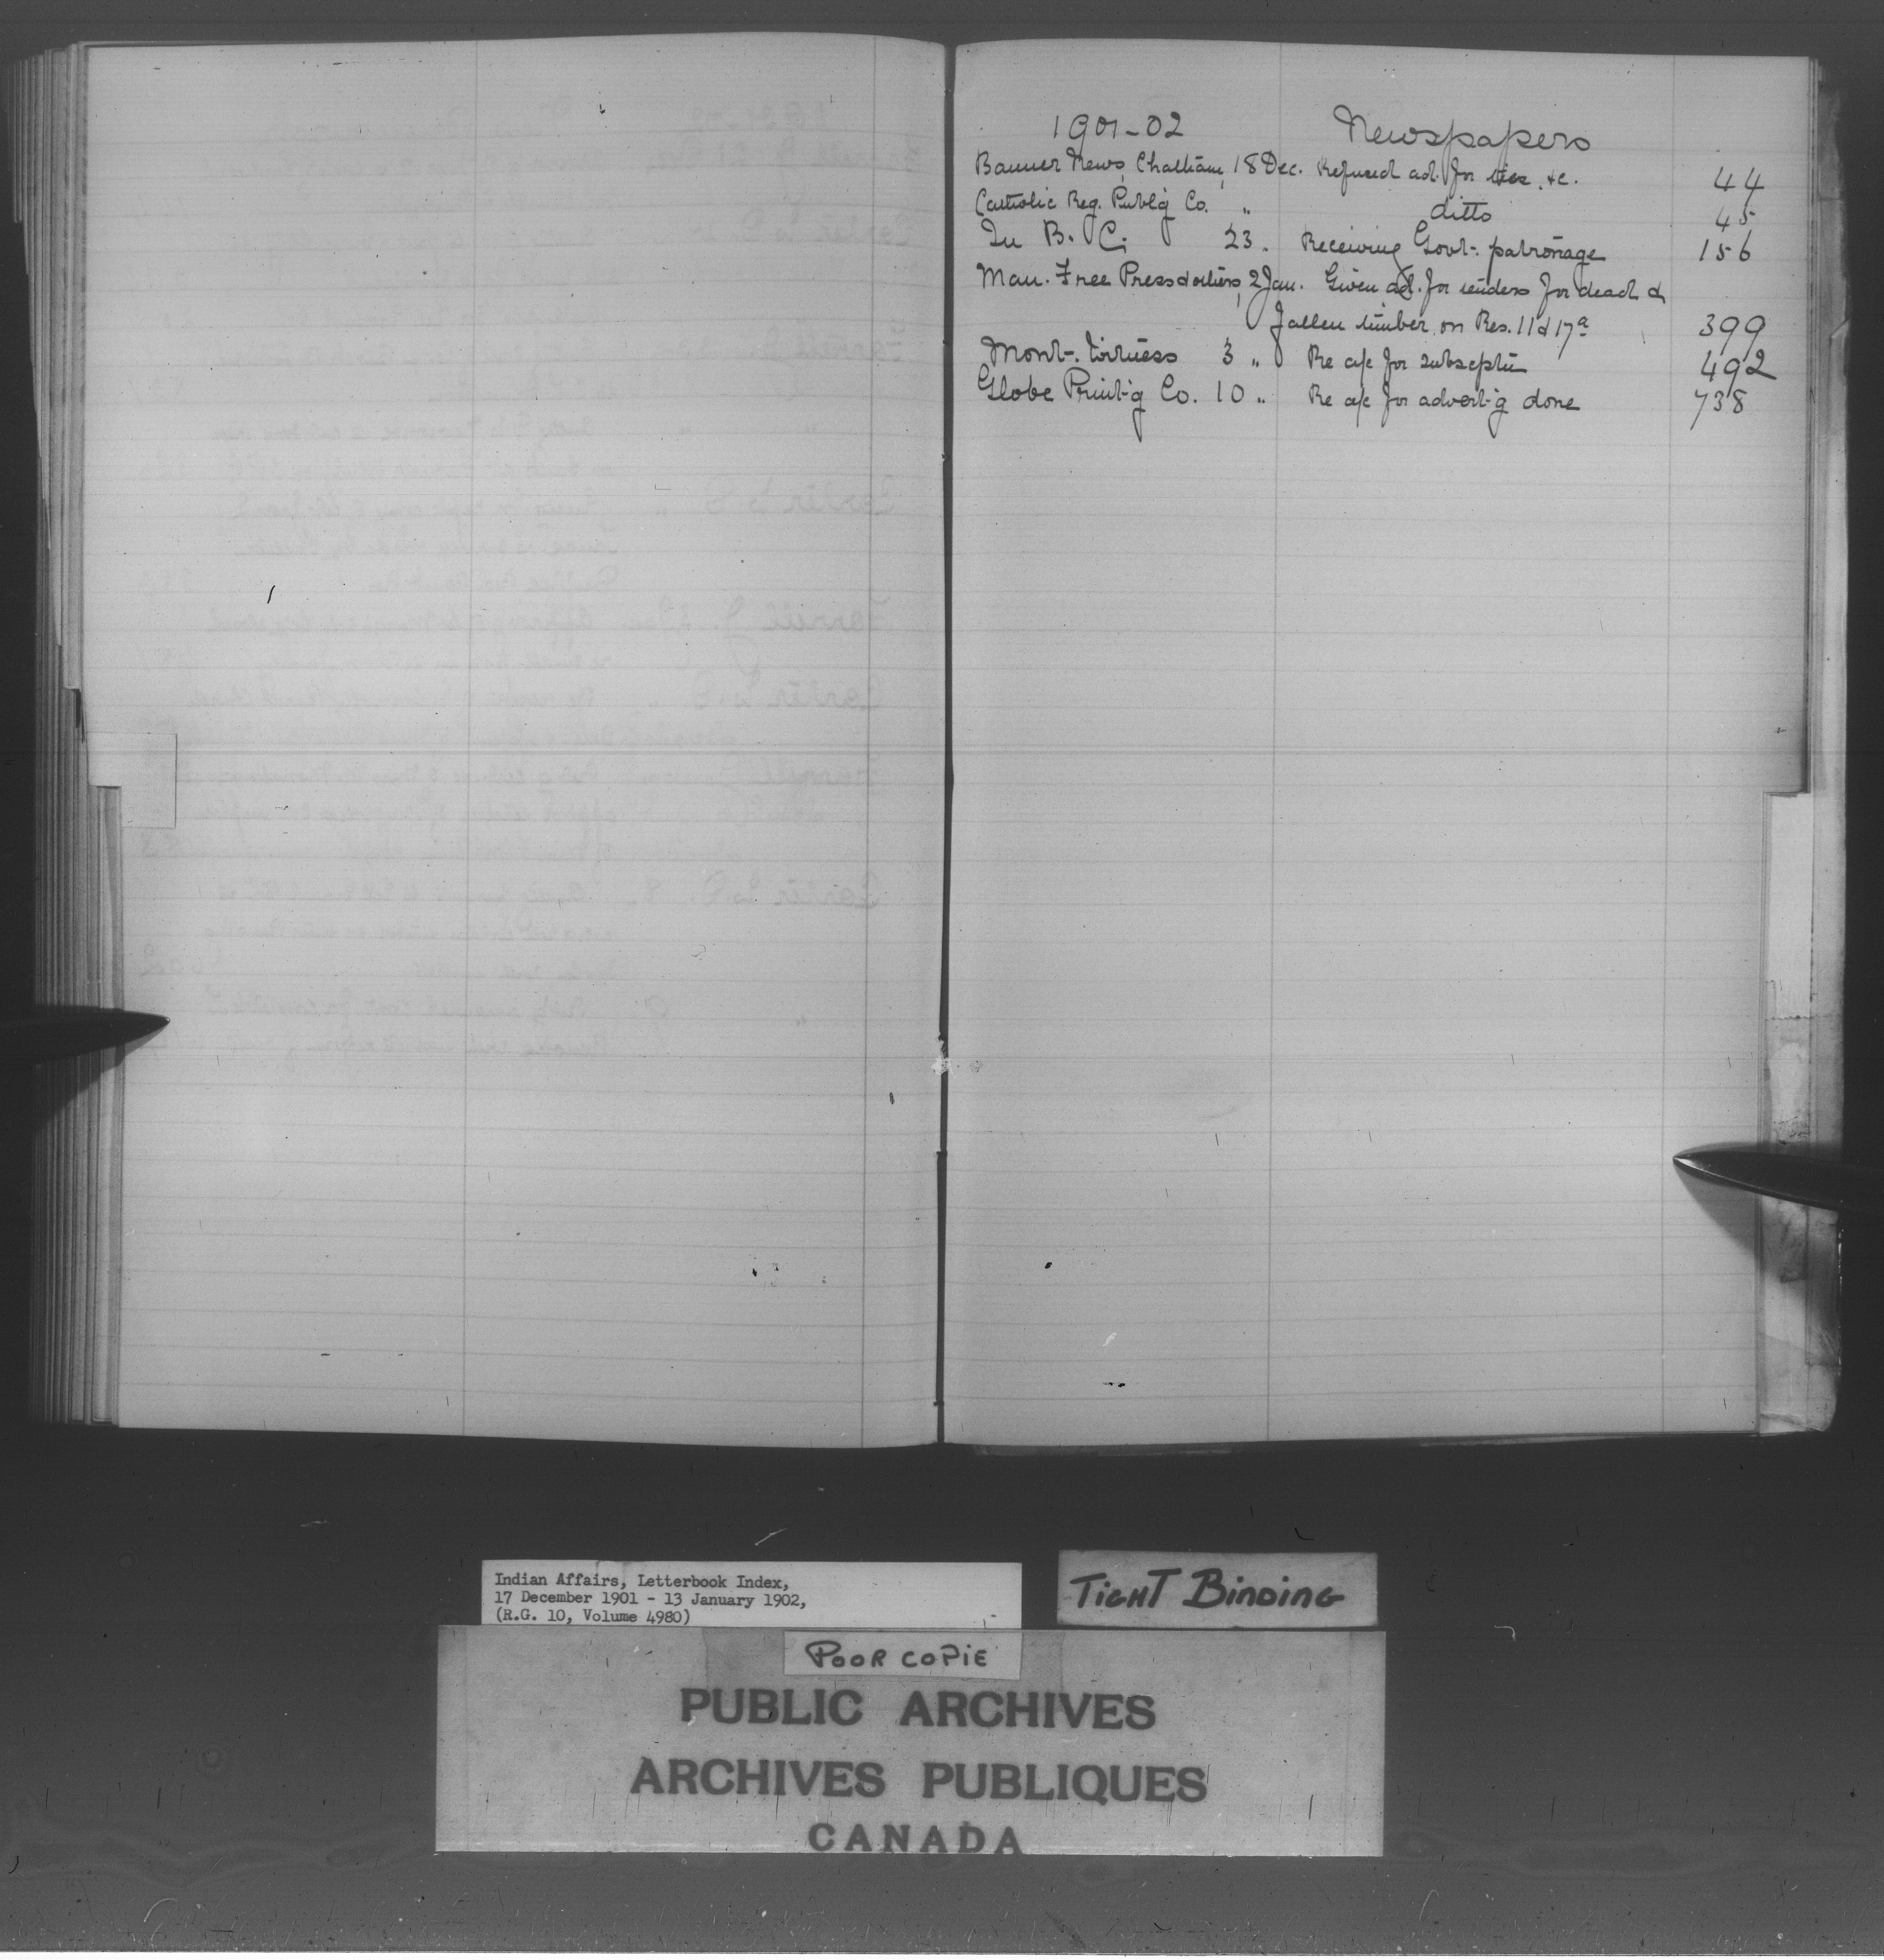 1901-02 Newspapers
Banner News, Chatham, 18 Dec. Refused ad. for &c. 44
Catholic Reg. Publ'g Co. " ditto 45
In B. C. 23. Receiving Govt. patronage 156
Man. Free Press & others, 2 Jan. Given ad. for tenders for dead &
fallen timber on Res. 11 & 17a 399
Mont. Witness 3 " Re a/c for subscptn 492
Globe Print-g Co. 10 " Re a/c for advert-g done 738
Indian Affairs, Letterbook Index,
17 December 1901 - 13 January 1902,
(R.G. 10, Volume 4980)
TIGHT BINDING
POOR COPIE
PUBLIC ARCHIVES
ARCHIVES PUBLIQUES
CANADA